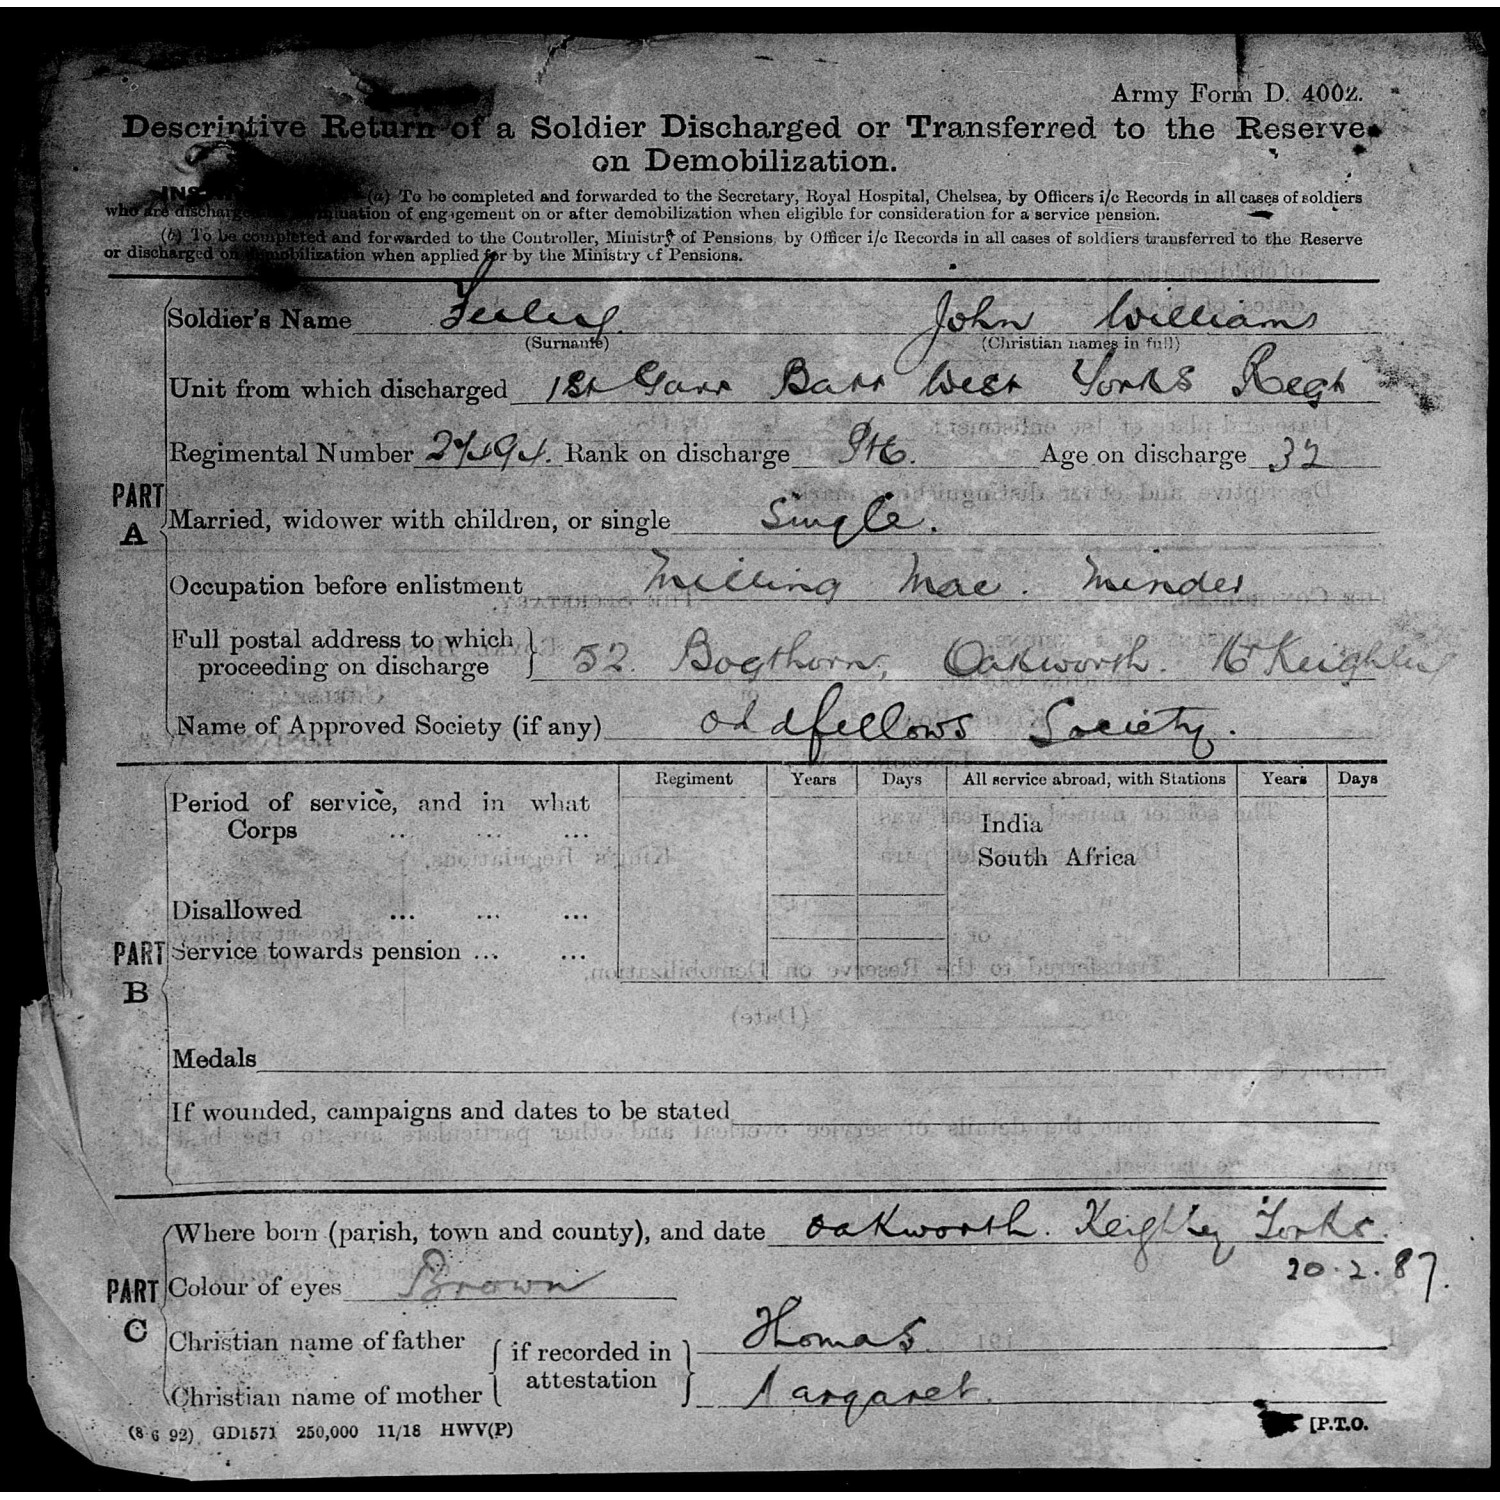 Army Form D. 4002.
Descriptive Return of a Soldier Discharged or Transferred to the Reserve
on Demobilization.
(a) To be completed and forwarded to the Secretary, Royal Hospital, Chelsea, by Officers i/c Records in all cases of soldiers
who are discharged on termination of engagement on or after demobilization when eligible for consideration for a service pension.
(b) To be completed and forwarded to the Controller, Ministry of Pensions, by Officer i/c Records in all cases of soldiers transferred to the Reserve
or discharged on demobilization when applied for by the Ministry of Pensions.
Soldier's Name John Williams
(Surname) (Christian names in full)
Unit from which discharged 1st Garr Batt West Yorks Regt
Regimental Number Rank on discharge Pte. Age on discharge 32
PART A
Married, widower with children, or single Single.
Occupation before enlistment Milling Mac. Minder
Full postal address to which
proceeding on discharge 52. Bogthorn, Oakworth. Nr Keighley
Name of Approved Society (if any) Oddfellows Society.
Regiment Years Days All service abroad, with Stations Years Days
Period of service, and in what
Corps .. ... ...
India
South Africa
Disallowed ... ... ...
PART B
Service towards pension ... ...
Medals
If wounded, campaigns and dates to be stated
Where born (parish, town and county), and date Oakworth. Keighley Yorks.
20.2.87.
PART C
Colour of eyes Brown
Christian name of father if recorded in Thomas
Christian name of mother attestation Margaret.
(8 6 92) GD1571 250,000 11/18 HWV(P) [P.T.O.